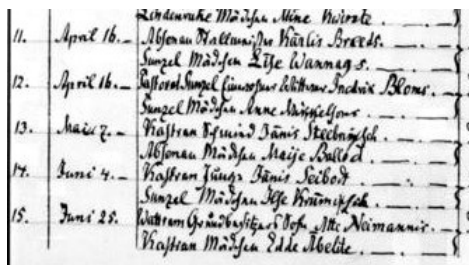 Lindenruhe Mädchen Mine Kwirote
11. April 16. — Absenau Stallmeister Kārlis Breeds.
Sunzel Mädchen Lihse Wannags.
12. April 16. — Pastorat Sunzel Wittwer Indrik Bloms.
Sunzel Mädchen Anne
13. Mai 7. — Kastran Schmied Jānis
Absenau Mädchen Maije Ballod
14. Juni 4. — Kastran Junge Jānis Seibot
Sunzel Mädchen Ilse
15. Juni 25. Wattram Grundbesitzers Sohn Atte Neimannis.
Kastran Mädchen Edde Abelite.